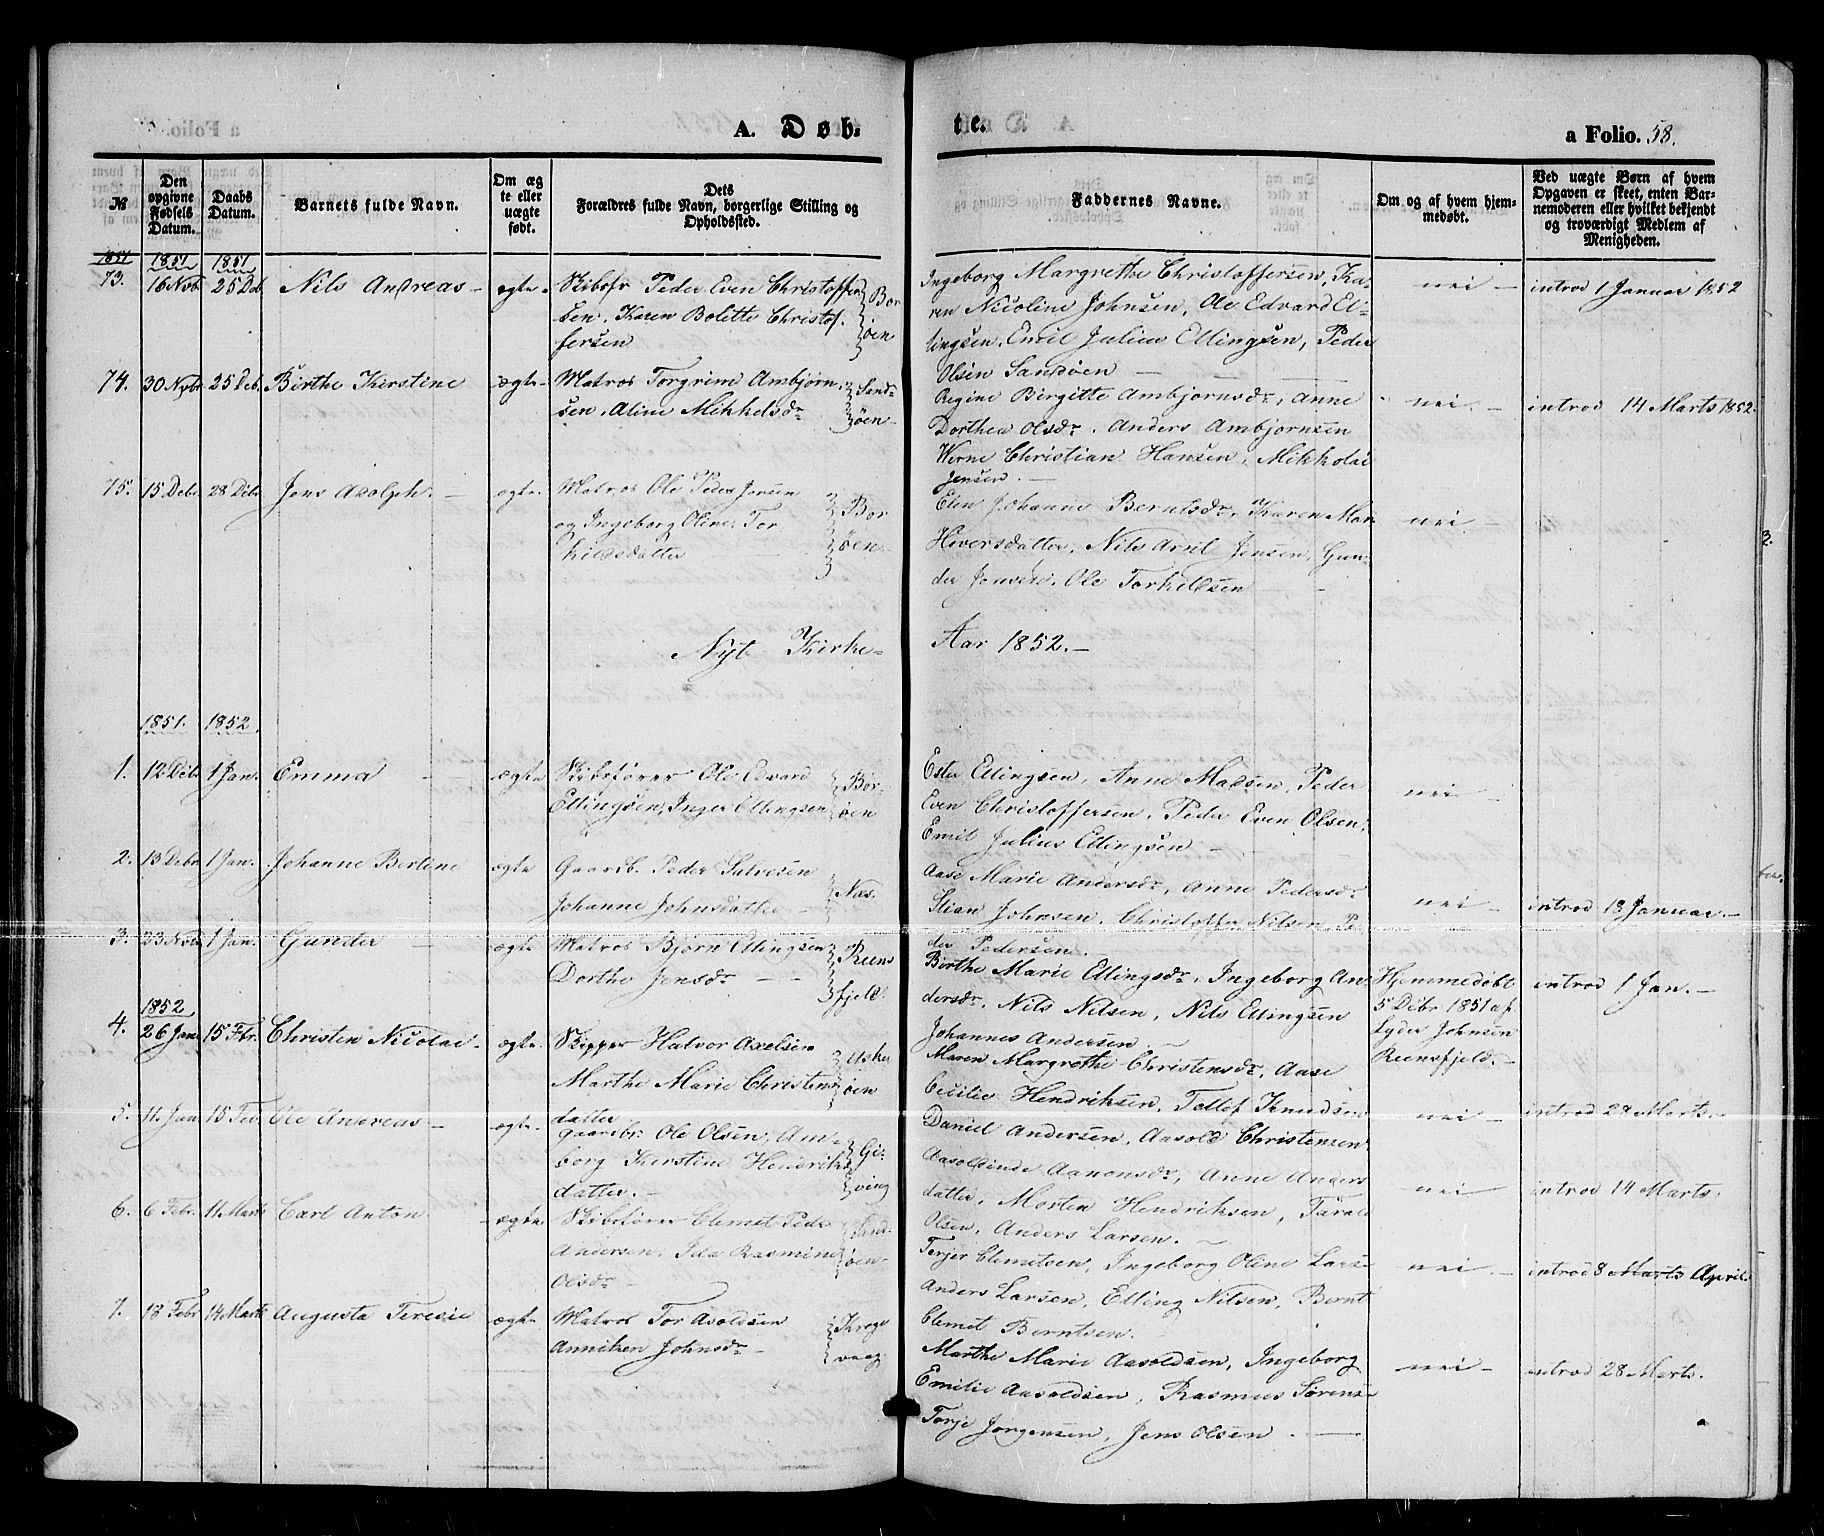 A. Døb-
te.
a Folio. 58.
№
Den opgivne Fødsels Datum.
Daabs Datum.
Barnets fulde Navn.
Om ægte eller uægte født.
Dets Forældres fulde Navn, borgerlige Stilling og Opholdssted.
Faddernes Navne.
Om og af hvem hjemmedøbt.
Ved uægte Børn af hvem Opgaven er skeet, enten Barnemoderen eller hvilket bekjendt og troværdigt Medlem af Menigheden.
1851 1851 1851
73. 16 Nvbr 25 Deb. Nils Andreas - ægte- Skibsfr Peder Even Christoffer
sen, Karen Bolette Christof-
fersen
Bor
øen
Ingeborg Margrethe Christoffersen, Ka-
ren Nicoline Johnsen, Ole Edvard El-
lingsen, Emil Julius Ellingsen, Peder
Olsen Sandøen
nei - introd 1 Januar 1852
74. 30 Nvbr 25 Deb. Birthe Kirstine ægte- Matros Torgrim Ambjørn-
sen, Aline Mikkelsdr
Sand-
øen
Regine Birgitte Ambjørnsdr, Anne
Dorthea Olsdr, Anders Ambjørnsen
Werne Christian Hansen, Mikkolai
Jensen. -
nei. - introd 14 Marts 1852.
75. 15 Debr 28 Debr Jens Adolph. - ægte. Matros Ole Peder Jensen
og Ingeborg Oline Tor
kildsdatter
Bor
øen
Elen Johanne Berntsdr, Karen Mar.
Hiversdatter, Nils Arnt Jensen, Gun-
der Jensen, Ole Torkildsen
nei -
Nyt Kirke-
Aar 1852. -
1851. 1852.
1. 12 Debr 1 Jan. Emma - ægte Skibsfører Ole Edvard
Ellingsen, Inger Ellingsen
Bor-
øen
Ester Ellingsen, Anne Madsen, Peder
Even Christoffersen, Peder Even Olsen,
Emil Julius Ellingsen -
nei -
2. 13 Debr 1 Jan. Johanne Bertine ægte Gaardb. Peder Salvesen
Johanne Johnsdatter -
Næs.
Aase Marie Andersdr, Anne Pedersdr
Stian Johnsen, Christoffer Nilsen, Pe-
der Pedersen.
nei - introd 18 Januar. -
3. 23 Nvbr 1 Jan. Gunder - ægte Matros Bjørn Ellingsen
Dorthe Jensdr -
Reens
fjeld.
Birthe Marie Ellingsdr, Ingeborg An-
dersdr, Nils Nilsen, Nils Ellingsen
Johannes Andersen. -
Hjemmedøbt
5 Debr 1851 af
Lyder Johnsen
Reensfjeld. -
introd 1 Jan. -
1852
4. 26 Jan. 15 Febr. Christen Nicolai - ægte. Skipper Halvor Axelsen
Marthe Marie Christens
datter
Asker
øen
Maren Margrethe Christensdr, Aase
Cecilie Hendriksen, Tellef Knudsen
Daniel Andersen, Aasold Christensen
nei - introd 29 Marts. -
5. 11 Jan. 15 Feb. Ole Andreas - ægte. Gaardbr. Ole Olsen, Am-
borg Kirstine Hendriks
datter. -
Gi-
ving
Aasoldine Aanonsdr, Anne Anders
datter, Morten Hendriksen, Tarald
Olsen, Anders Larsen. -
nei - introd 14 Marts.
6. 6 Febr. 11 Marts Carl Anton. - ægte. Skibsfører Clemet Peder
Andersen, Ida Rasmine
Olsdr -
Sand-
øen
Terjer Clemetsen, Ingeborg Oline Larse
Anders Larsen, Elling Nilsen, Bernt
Clemet Berntsen.
nei. - introd 8 Marts April.
7. 18 Febr 14 Marts Augusta Teresie ægte. Matros Tor Asoldsen
Anniken Johnsdr -
Krogs
vaag.
Marthe Marie Aasoldsen, Ingeborg
Emilie Aasoldsen, Rasmus Sørens-
Torje Jørgensen, Jens Olsen. -
nei - introd 28 Marts.